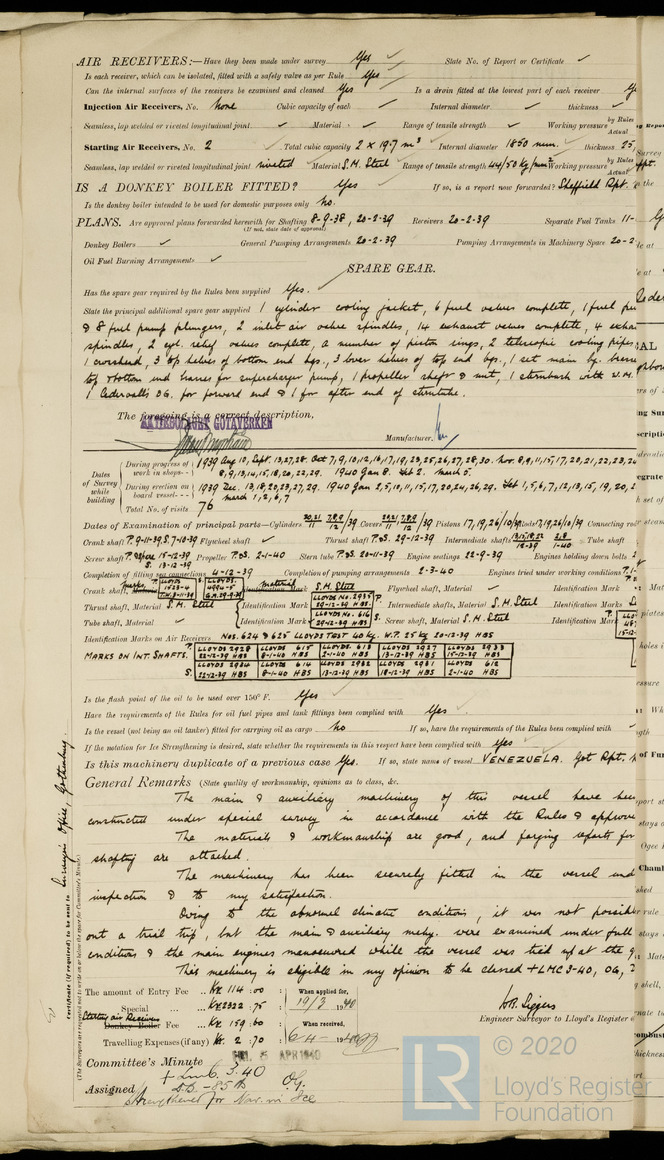 AIR RECEIVERS:—Have they been made under survey Yes ✓ State No. of Report or Certificate ✓
Is each receiver, which can be isolated, fitted with a safety valve as per Rule Yes
Can the internal surfaces of the receivers be examined and cleaned Yes Is a drain fitted at the lowest part of each receiver
Injection Air Receivers, No. None Cubic capacity of each ✓ Internal diameter ✓ thickness ✓
Seamless, lap welded or riveted longitudinal joint ✓ Material ✓ Range of tensile strength ✓ Working pressure by Rules Actual
Starting Air Receivers, No. 2 Total cubic capacity 2 x 19.7 m³ Internal diameter 1850 mm. thickness 25,
Seamless, lap welded or riveted longitudinal joint riveted Material S.M. Steel Range of tensile strength 44/50 kg/mm² Working pressure by Rules Actual
IS A DONKEY BOILER FITTED? Yes If so, is a report now forwarded? Sheffield Rpt.
Is the donkey boiler intended to be used for domestic purposes only no.
PLANS. Are approved plans forwarded herewith for Shafting 8-9-38, 20-2-39 Receivers 20-2-39 Separate Fuel Tanks 11-
(If not, state date of approval)
Donkey Boilers ✓ General Pumping Arrangements 20-2-39 Pumping Arrangements in Machinery Space 20-2
Oil Fuel Burning Arrangements ✓
SPARE GEAR.
Has the spare gear required by the Rules been supplied Yes.
State the principal additional spare gear supplied 1 cylinder cooling jacket, 6 fuel valves complete, 1 fuel
& 8 fuel pump plungers, 2 inlet air valve spindles, 14 exhaust valves complete, 4
spindles, 2 cyl. relief valves complete, a number of piston rings, 2 telescopic cooling pipes
1 crosshead, 3 top halves of bottom end bgs., 3 lower halves of top end bgs., 1 set main bg.
top & bottom end brasses for supercharger pump, 1 propeller shaft & nut, 1 sternbush with W.M.
1 Cedervalls OG. for forward end & 1 for after end of sterntube.
The foregoing is a correct description,
AKTIEBOLAGET GÖTAVERKEN
Manufacturer.
Dates of Survey while building
During progress of work in shops-- 1939 Aug 10, Sept. 13,27,28. Oct 7,9,10,12,16,17,19,23,25,26,27,28,30. Nov. 8,9,11,15,17,20,21,22,23,24
8,9,13,14,15,18,20,22,29. 1940 Jan 8. Feb 2. March 5.
During erection on board vessel--- 1939 Dec. 13,18,20,23,27,29. 1940 Jan 2,5,10,11,15,17,20,24,26,29. Feb 1,5,6,7,12,13,15,19,20,2
march 1,2,6,7
Total No. of visits 76
Dates of Examination of principal parts—Cylinders 20,21 7,8,9 /39 Covers 20,21 7,8,9 /39 Pistons 17,19,26/10/39 Rods 17,19,26/10/39 Connecting rod
Crank shaft P. 9-11-39, S. 7-10-39 Flywheel shaft ✓ Thrust shaft P.&S. 29-12-39 Intermediate shafts Tube shaft
Screw shaft P. & Spare 15-12-39 S. 13-12-39 Propeller P.&S. 2-1-40 Stern tube P.&S. 20-11-39 Engine seatings 22-9-39 Engines holding down bolts
Completion of fitting sea connections 4-12-39 Completion of pumping arrangements 2-3-40 Engines tried under working conditions
Crank shaft, Identification Mark material S.M. Steel Flywheel shaft, Material ✓ Identification Mark
Thrust shaft, Material S.M. Steel Identification Mark LLOYDS No. 2935 29-12-39 HBS. Intermediate shafts, Material S.M. Steel Identification Marks
Tube shaft, Material ✓ Identification Mark LLOYDS No. 616 29-12-39 HBS. Screw shaft, Material S.M. Steel Identification Mark
Identification Marks on Air Receivers Nos. 624 & 625 LLOYDS TEST 40 kg. W.P. 25 kg 20-12-39 HBS
MARKS ON INT. SHAFTS. P. LLOYDS 2928 22-12-39 HBS LLOYDS 615 8-1-40 HBS LLOYDS 613 2-1-40 HBS LLOYDS 2927 13-12-39 HBS LLOYDS 2933 15-12-39 HBS
S. LLOYDS 2934 22-12-39 HBS LLOYDS 614 8-1-40 HBS LLOYDS 2932 13-12-39 HBS LLOYDS 2931 18-12-39 HBS LLOYDS 612 2-1-40 HBS
Is the flash point of the oil to be used over 150° F. Yes
Have the requirements of the Rules for oil fuel pipes and tank fittings been complied with Yes
Is the vessel (not being an oil tanker) fitted for carrying oil as cargo no If so, have the requirements of the Rules been complied with
If the notation for Ice Strengthening is desired, state whether the requirements in this respect have been complied with yes
Is this machinery duplicate of a previous case Yes. If so, state name of vessel VENEZUELA. Got Rpt.
General Remarks (State quality of workmanship, opinions as to class, &c.
The main & auxiliary machinery of this vessel have been
constructed under special survey in accordance with the Rules &
The materials & workmanship are good, and forging reports for
shafting are attached.
The machinery has been securely fitted in the vessel
inspection & to my satisfaction.
Owing to the abnormal climatic conditions, it was not possible
out a trial trip, but the main & auxiliary mchy. were examined under full
conditions & the main engines manoeuvred while the vessel was tied up at the
This machinery is eligible in my opinion to be classed +LMC 3-40, OG,
The amount of Entry Fee .. Kr. 114.00 When applied for,
Special ... Kr. 2322.75 19/3 1940
Starting air Receivers Donkey Boiler Fee ... Kr. 159.60 When received,
Travelling Expenses (if any) Kr. 2.70 6-4- 1940
Engineer Surveyor to Lloyd's Register
Committee's Minute FRI. 5 APR 1940
Assigned + LMC 3.40 O.G.
D.B. - 85 lb
strengthened for Nav. in Ice
Certificate (if required) to be sent to Surveyors Office, Gothenburg.
(The Surveyors are requested not to write on or below the space for Committee's Minute.)
LR © 2020
Lloyd's Register
Foundation